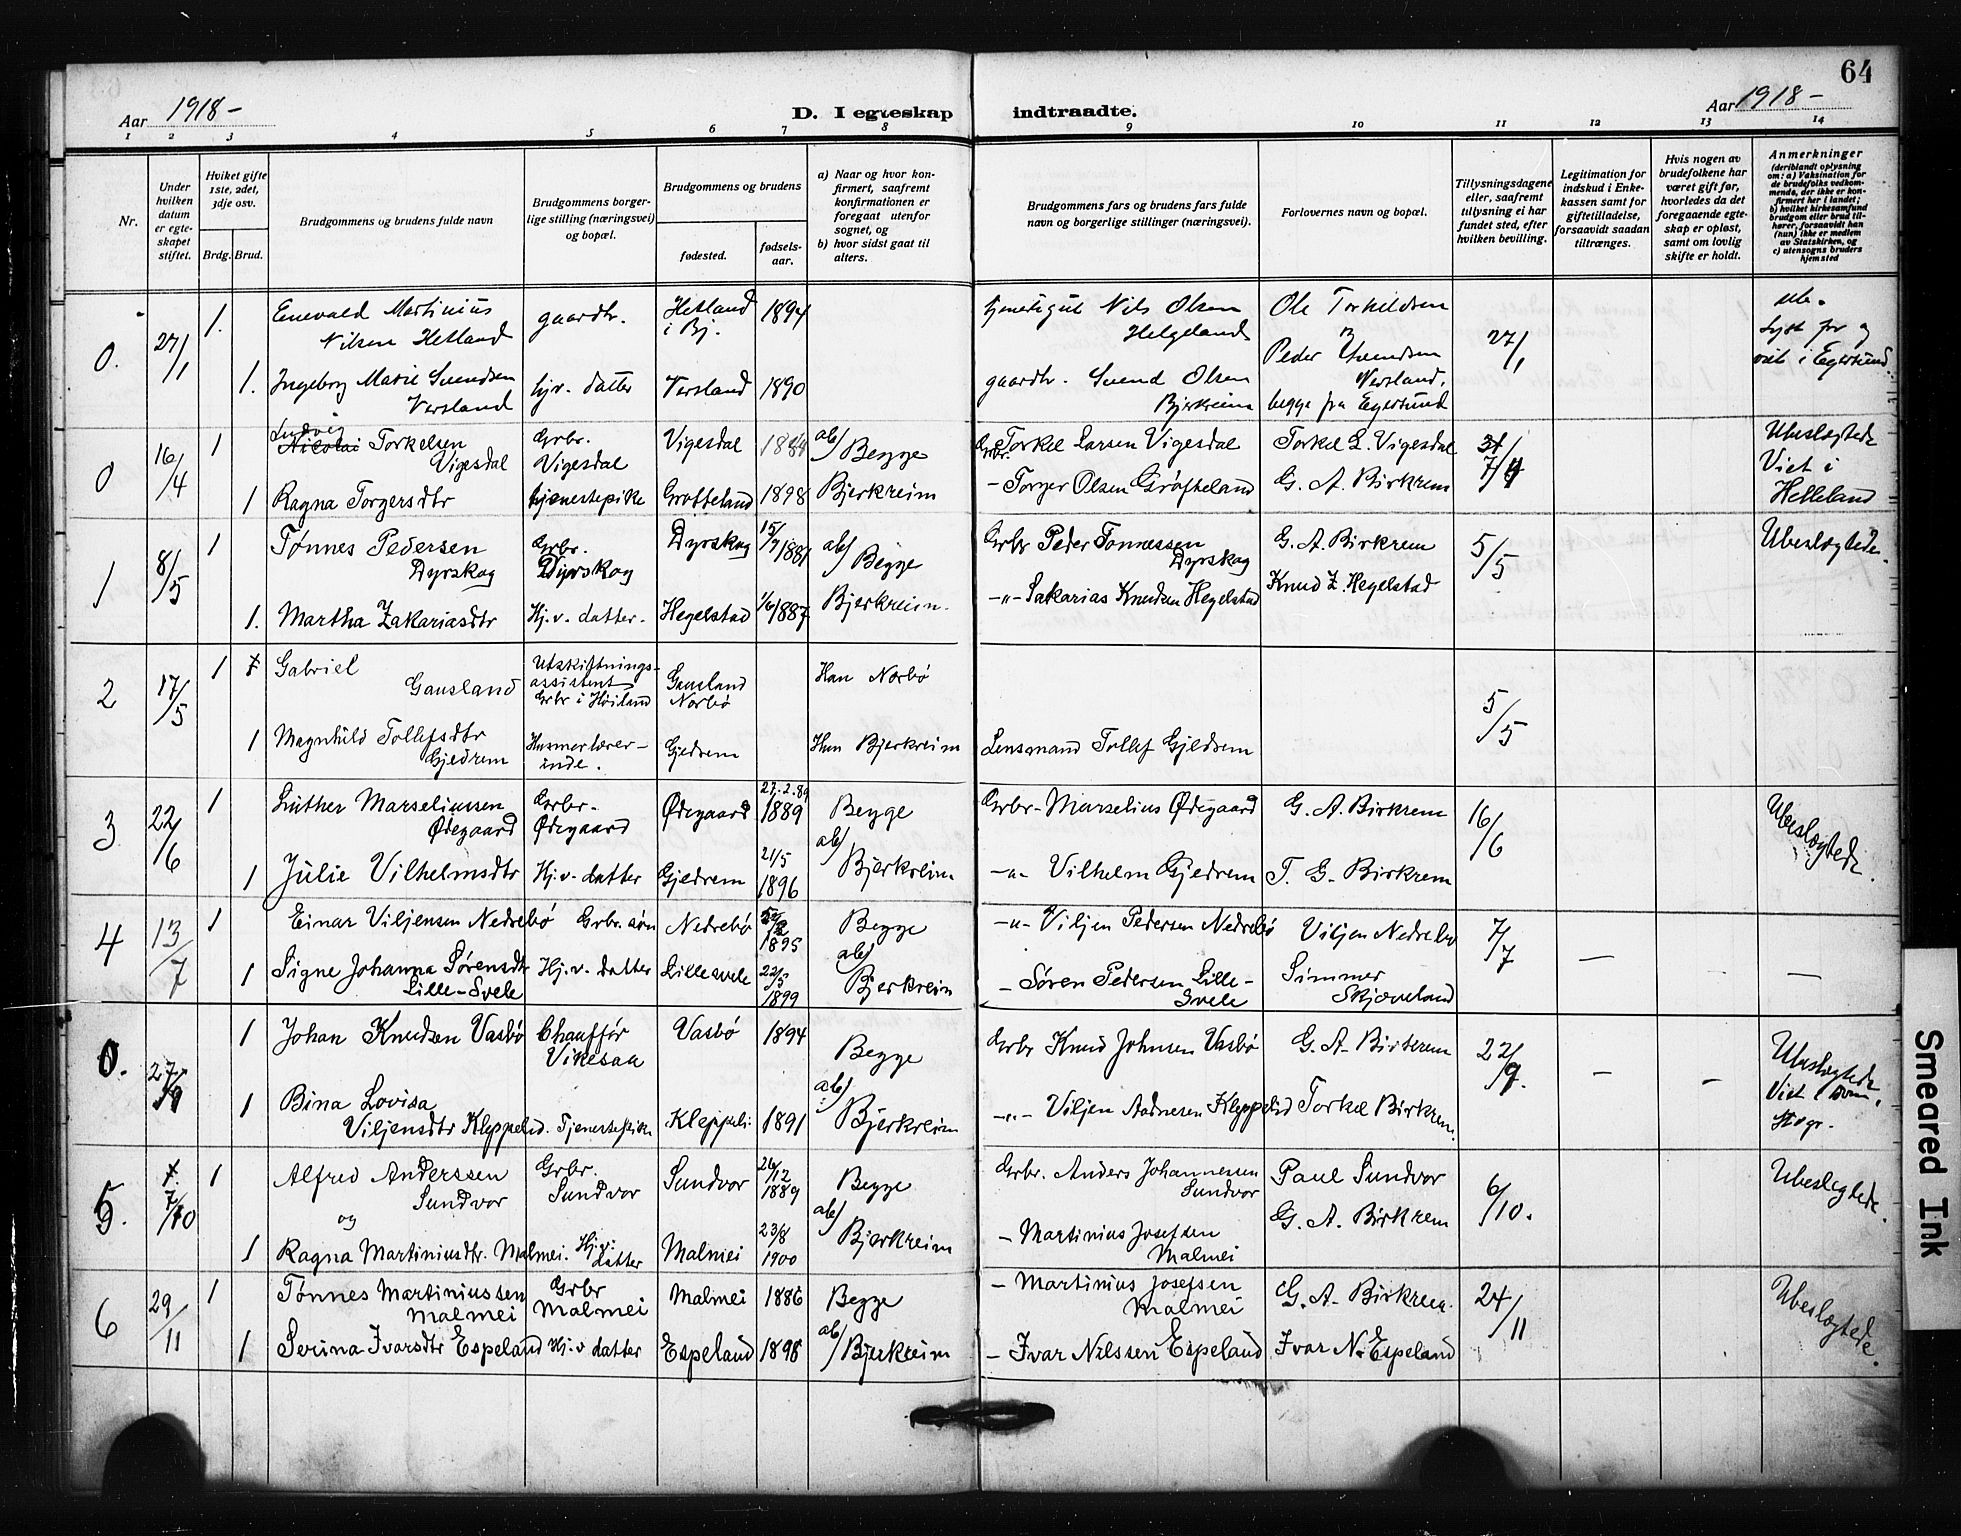 64
Aar 1918-
D. I egteskap indtraadte.
Aar 1918-
1 2 3 4 5 6 7 8 9 10 11 12 13 14
Nr.
Under hvilken datum er egteskapet stiftet.
Hviket gifte 1ste, 2det, 3dje osv.
Brdg. Brud.
Brudgommens og brudens fulde navn
Brudgommens borgerlige stilling (næringsvei) og bopæl.
Brudgommens og brudens
fødested.
fødselsaar.
a) Naar og hvor konfirmert, saafremt konfirmationen er foregaat utenfor sognet, og
b) hvor sidst gaat til alters.
Brudgommens fars og brudens fars fulde navn og borgerlige stillinger (næringsvei).
Forlovernes navn og bopæl.
Tillysningsdagene eller, saafremt tillysning ei har fundet sted, efter hvilken bevilling.
Legitimation for indskud i Enkekassen samt for giftetilladelse, forsaavidt saadan tiltrænges.
Hvis nogen av brudefolkene har været gift før, hvorledes da det foregaaende egteskap er opløst, samt om lovlig skifte er holdt.
Anmerkninger
(deriblandt oplysning om: a) Vaksination for de brudefolks vedkommende, der ikke er konfirmert her i landet;
b) hvilket kirkesamfund brudgom eller brud tilhører, forsaavidt han (hun) ikke er medlem av Statskirken, og
c) utensogns bruders hjemsted
0. 27/1 1. Enevald Martinius Nilsen Hetland gaardbr. Hetland i Bj. 1894 Nils Olsen Helgeland Ole Torkildsen 27/1 ub.
1. Ingeborg Marie Svendsen Versland hjv. datter Versland 1890 gaardbr. Svend Olsen Bjerkreim Peder Svendsen Versland, begge fra Egersund Lyst for og viet i Egersund
0 16/4 1 Ludvig Nicolai Torkelsen Vigesdal Grbr. Vigesdal Vigesdal 1884 ab/ Begge Grbr. Torkel Larsen Vigesdal Torkel L. Vigesdal 7/4 Ubeslægtede
1 Ragna Torgersdtr tjenestepike Grøfteland 1898 Bjerkreim - Torger Olsen Grøfteland G. A. Birkrem Viet i Helleland
1 8/5 1 Tønnes Pedersen Dyrskog Grbr. Dyrskog Dyrskog 15/7 1881 ab/ Begge Grbr Peder Tønnessen Dyrskog G. A. Birkrem 5/5 Ubeslægtede.
1. Martha Zakariasdtr Hj.v. datter. Hegelstad 1/6 1887 Bjerkreim. -"- Sakarias Knudsen Hegelstad Knud Z. Hegelstad
2 17/5 1 Gabriel Gausland Utskiftningsassistent Grbr i Høiland Gausland Nærbø Han Nærbø 5/5
1 Magnhild Tollefsdtr Gjedrem Husmorlærerinde. Gjedrem Hun Bjerkreim Lensmand Tollef Gjedrem
3 22/6 1 Luther Marseliussen Ødegaard Grbr. Ødegaard Ødegaard 27.2.89 1889 Begge ab/ Grbr- Marselius Ødegaard G. A. Birkrem 16/6 Ubeslægtede.
1 Julie Vilhelmsdtr Hj.v. datter Gjedrem 21/5 1896 Bjerkreim -"- Vilhelm Gjedrem T. G. Birkrem
4 13/7 1 Einar Viljensen Nedrebø Grbr. søn Nedrebø 1895 Begge ab/ -"- Viljen Pedersen Nedrebø Viljen Nedrebø 7/7 — —
1 Signe Johanna Sørensdtr Lille-Svele Hj.v. datter Lillesvele 22/3 1899 Bjerkreim - Søren Pedersen Lille-Svele Simmer Skjæveland
0. 27/9 1 Johan Knudsen Vasbø Chauffør Vikesaa Vasbø 1894 Begge ab/ Grbr Knud Johnsen Vasbø G. A. Birkrem 22/9. — — Ubeslægtede
1 Bina Lovisa Viljensdtr Kleppelid. Tjenestepike Kleppeli: 1891 Bjerkreim -"- Viljen Aadnesen Kleppelid Torkel Birkrem. Viet i
5. 7/10 1 Alfred Anderssen Sundvor Grbr. Sundvor Sundvor 26/12 1889 Begge ab/ Grbr. Anders Johannessen Sundvor Paul Sundvor 6/10. Ubeslegtede.
og
1 Ragna Martiniusdtr. Malmei. Hj.v. datter Malmei 23/8 1900 Bjerkreim - Martinius Josefsen Malmei G. A. Birkrem
6 29/11 1 Tønnes Martiniussen Malmei Grbr Malmei Malmei 1886 Begge ab/ - Martinius Josefsen Malmei G. A. Birkrem. 24/11 Ubeslægtede.
1 Serina Ivarsdtr Espeland Hj.v datter Espeland 1898 Bjerkreim - Ivar Nilssen Espeland Ivar N. Espeland
Smeared Ink